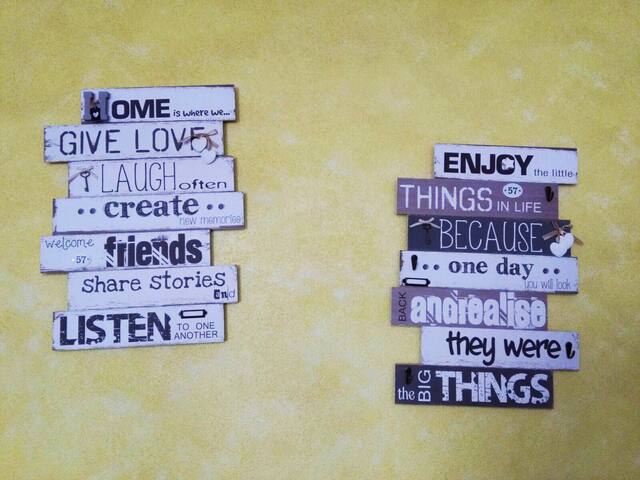 HOME is where we...
GIVE LOVE
LAUGH often
create
new memories
welcome
57 friends
share stories
and
LISTEN TO ONE
ANOTHER
ENJOY the little
THINGS 57 IN LIFE
BECAUSE
one day
you will look
BACK andrealise
they were
the BIG THINGS